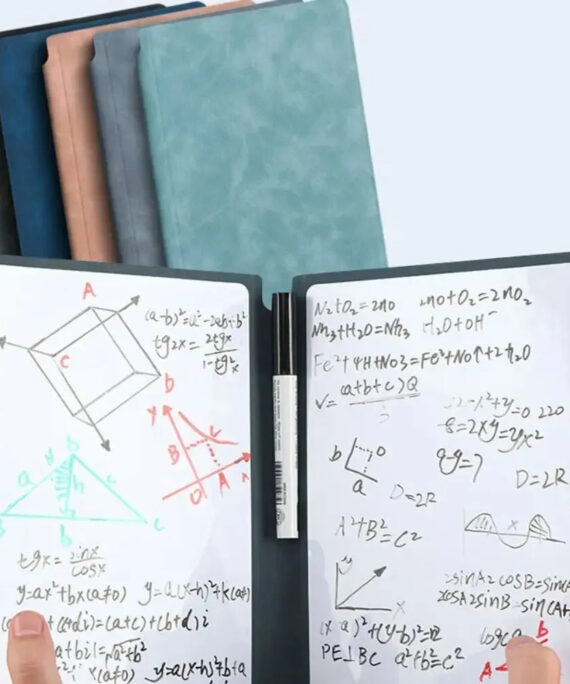 A
(a-b)²=a²-2ab+b²
tg2x=2tgx/1-tg²x
C
D
Y
B
O A x
a h c
b c
tgx=sinx/cosx
y=ax²+bx(a≠0) y=a(x-h)²+k(a≠
+(c+di)=(a+c)+(b+d)i
a+bi|=√a²+b²
x(a≠0) y=a(x-h)²+b+a
N₂+O₂=2no 2no+O₂=2nO₂
Nh₃+H₂O=Nh₃ H₂O+OH⁻
Fe²+4H+No3=Fe³+No↑+2h₂O
V=(a+b+c)Q
=0 220
=2xy=yx²
qy=7
b O
a
D=2R
D=2R
A²+B²=C²
x
y
x
2sinA2cosB=sin(A
2cosA2sinB=sin(A+
(x-a)²+(y-b)²=
PE⊥BC a²+b²=c²
b
A